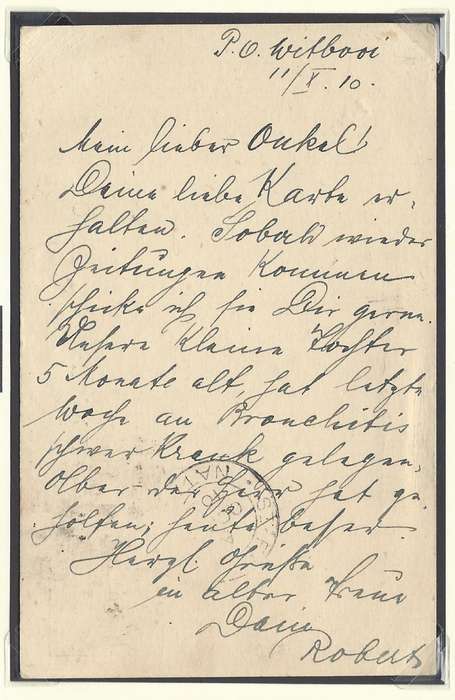 P. O. Witbooi
11/X. 10.
Mein lieber Onkel!
Deine liebe Karte er-
halten. Sobald wieder
Zeitungen kommen
schicke ich sie Dir gerne.
Unsere kleine Tochter
5 Monate alt, hat letzte
Woche an Bronchitis
schwer krank gelegen,
Aber der Herr hat ge-
holfen; heute besser.
Herzl. Grüße
in alter Treue
Dein
Robert